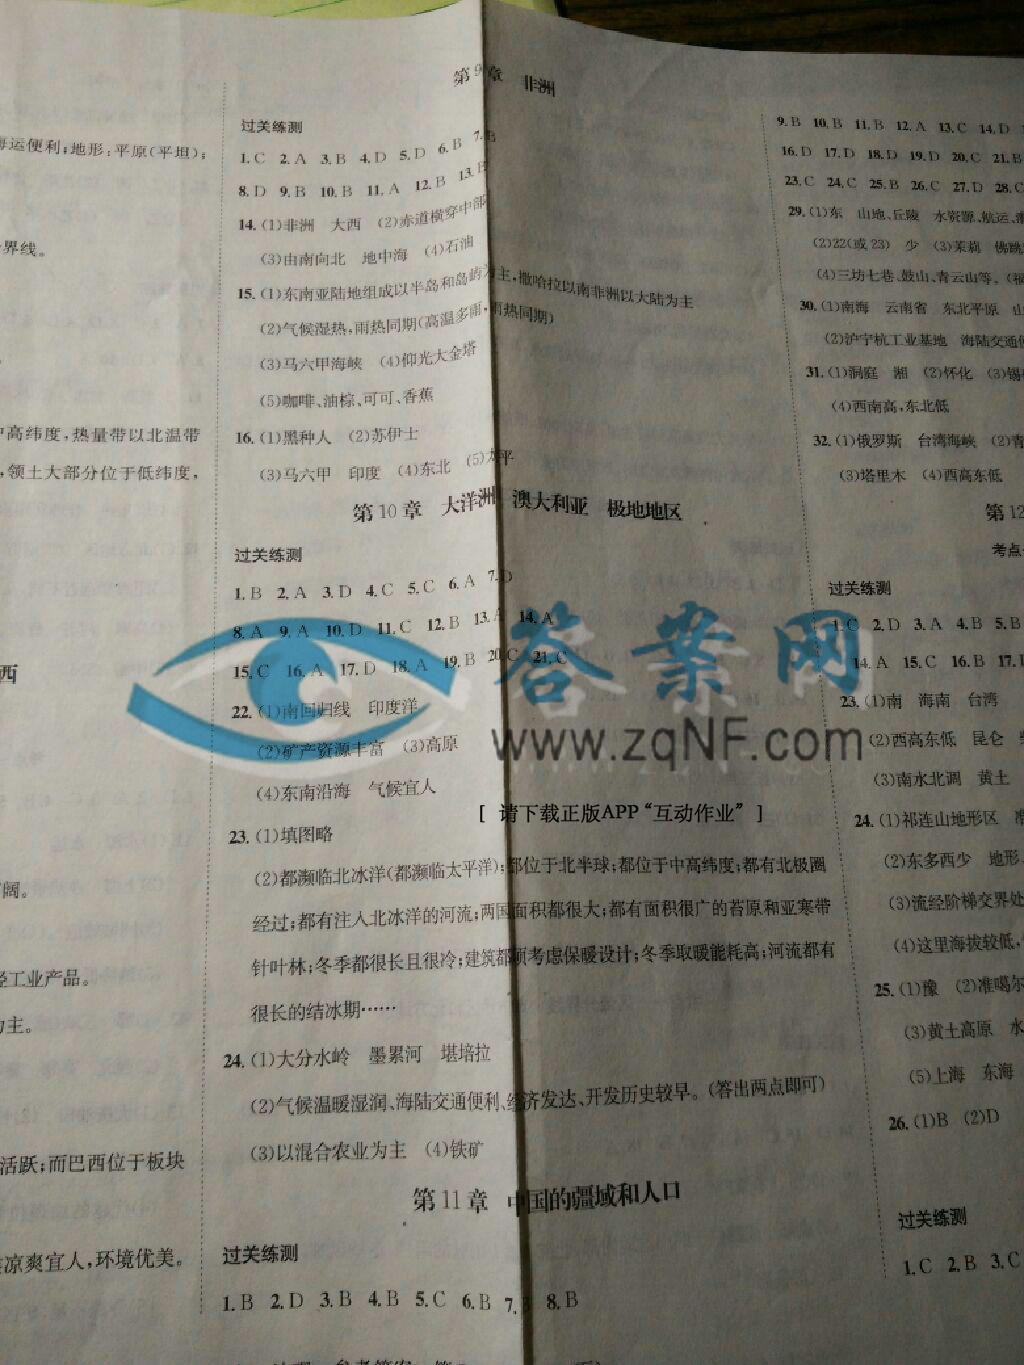 海运便利;地形:平原(平坩);
界线。
中高纬度,热量带以北温带
,领土大部分位于低纬度,
西
阔。
轻工业产品。
为主。
活跃;而巴西位于板块
凉爽宜人,环境优美。
第9章 非洲
过关练测
1.C 2.A 3.B 4.D 5.D 6.B 7.B
8.D 9.B 10.B 11.A 12.B 13.B
14.(1)非洲 大西 (2)赤道横穿中部
(3)由南向北 地中海 (4)石油
15.(1)东南亚陆地组成以半岛和岛屿为主,撒哈拉以南非洲以大陆为主
(2)气候湿热,雨热同期(高温多雨,雨热同期)
(3)马六甲海峡 (4)仰光大金塔
(5)咖啡、油棕、可可、香蕉
16.(1)黑种人 (2)苏伊士
(3)马六甲 印度 (4)东北 (5)太平
第10章 大洋洲 澳大利亚 极地地区
过关练测
1.B 2.A 3.D 4.C 5.C 6.A 7.D
8.A 9.A 10.D 11.C 12.B 13.A 14.A
15.C 16.A 17.D 18.A 19.B 20.C 21.C
22.(1)南回归线 印度洋
(2)矿产资源丰富 (3)高原
(4)东南沿海 气候宜人
23.(1)填图略
(2)都濒临北冰洋(都濒临太平洋);都位于北半球;都位于中高纬度;都有北极圈
经过;都有注入北冰洋的河流;两国面积都很大;都有面积很广的苔原和亚寒带
针叶林;冬季都很长且很冷;建筑都须考虑保暖设计;冬季取暖能耗高;河流都有
很长的结冰期……
24.(1)大分水岭 墨累河 堪培拉
(2)气候温暖湿润、海陆交通便利、经济发达、开发历史较早。(答出两点即可)
(3)以混合农业为主 (4)铁矿
第11章 中国的疆域和人口
过关练测
1.B 2.D 3.B 4.B 5.C 6.B 7. 8.B
9.B 10.B 11.B 12.A 13.C 14.D
16.D 17.D 18.D 19.D 20.C 21.B
23.C 24.C 25.B 26.C 27.D 28.C
29.(1)东 山地、丘陵 水资源、航运、
(2)22(或23) 少 (3)茉莉 佛跳
(4)三坊七巷、鼓山、青云山等。(
30.(1)南海 云南省 东北平原
(2)沪宁杭工业基地 海陆交通便
31.(1)洞庭 湘 (2)怀化 (3)锡
(4)西南高,东北低
32.(1)俄罗斯 台湾海峡 (2)
(3)塔里木 (4)西高东低
第12
考点
过关练测
1.C 2.D 3.A 4.B 5.B
14.A 15.C 16.B 17.
23.(1)南 海南 台湾
(2)西高东低 昆仑
(3)南水北调 黄土
24.(1)祁连山地形区
(2)东多西少 地形、
(3)流经阶梯交界处
(4)这里海拔较低,
25.(1)豫 (2)准噶尔
(3)黄土高原 水
(5)上海 东海
26.(1)B (2)D
过关练测
1.C 2.B 3.C
答案网
www.zqNF.com
[ 请下载正版APP“互动作业” ]